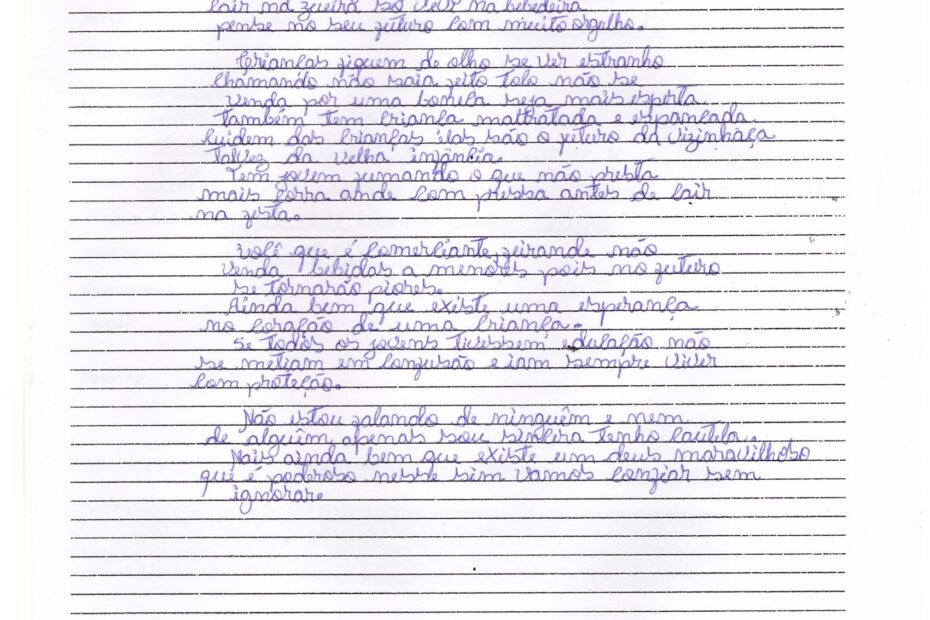 cair na zueira só viver na bebedeira
pense no seu futuro com muito orgulho.
Crianças fiquem de olho se ver estranho
chamando não saia feito tolo não se
venda por uma boneca seja mais esperta.
Também tem criança maltratada e espancada
cuidem das crianças elas são o futuro da vizinhaça
talvez da velha infância.
Tem jovem fumando o que não presta
mais corra ande com pressa antes de cair
na festa.
Você que é comerciante, feirande não
venda bebidas a menores pois no futuro
se tornarão piores.
Ainda bem que existe uma esperança
no coração de uma criança.
Se todos os jovens tivessem educação não
se metiam em confusão e iam sempre viver
com proteção.
Não estou falando de ninguêm e nem
de alguêm, apenas sou sincera tenho cautela.
Mais ainda bem que existe um deus maravilhoso
que é poderoso nesse sim vamos confiar sem
ignorar.